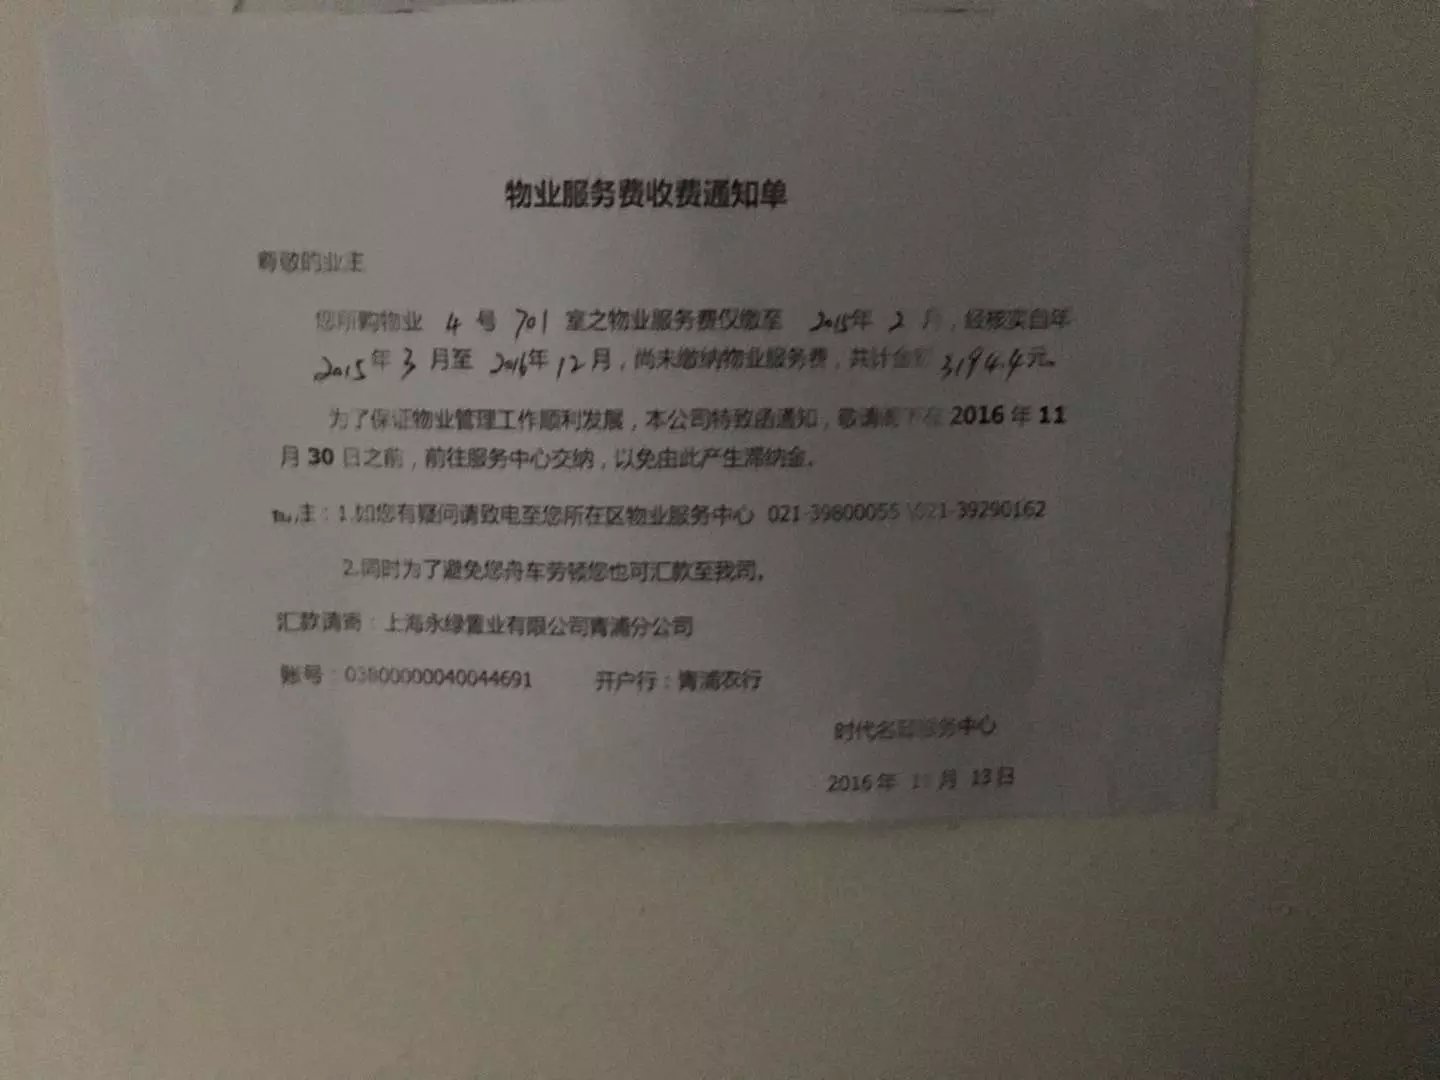 物业服务费收费通知单
尊敬的业主
您所购物业 4 号 701 室之物业服务费仅缴至 2015年 2 月，经核实自年
2015年 3 月至 2016年 12月，尚未缴纳物业服务费，共计金额 3194.4元。
为了保证物业管理工作顺利发展，本公司特致函通知，敬请阁下在 2016 年 11
月 30 日之前，前往服务中心交纳，以免由此产生滞纳金。
注：1.如您有疑问请致电至您所在区物业服务中心 021-39800055 \021-39290162
2.同时为了避免您舟车劳顿您也可汇款至我司。
汇款请寄：上海永绿置业有限公司青浦分公司
账号：03800000040044691 开户行：青浦农行
时代名邸服务中心
2016 年 月 13日